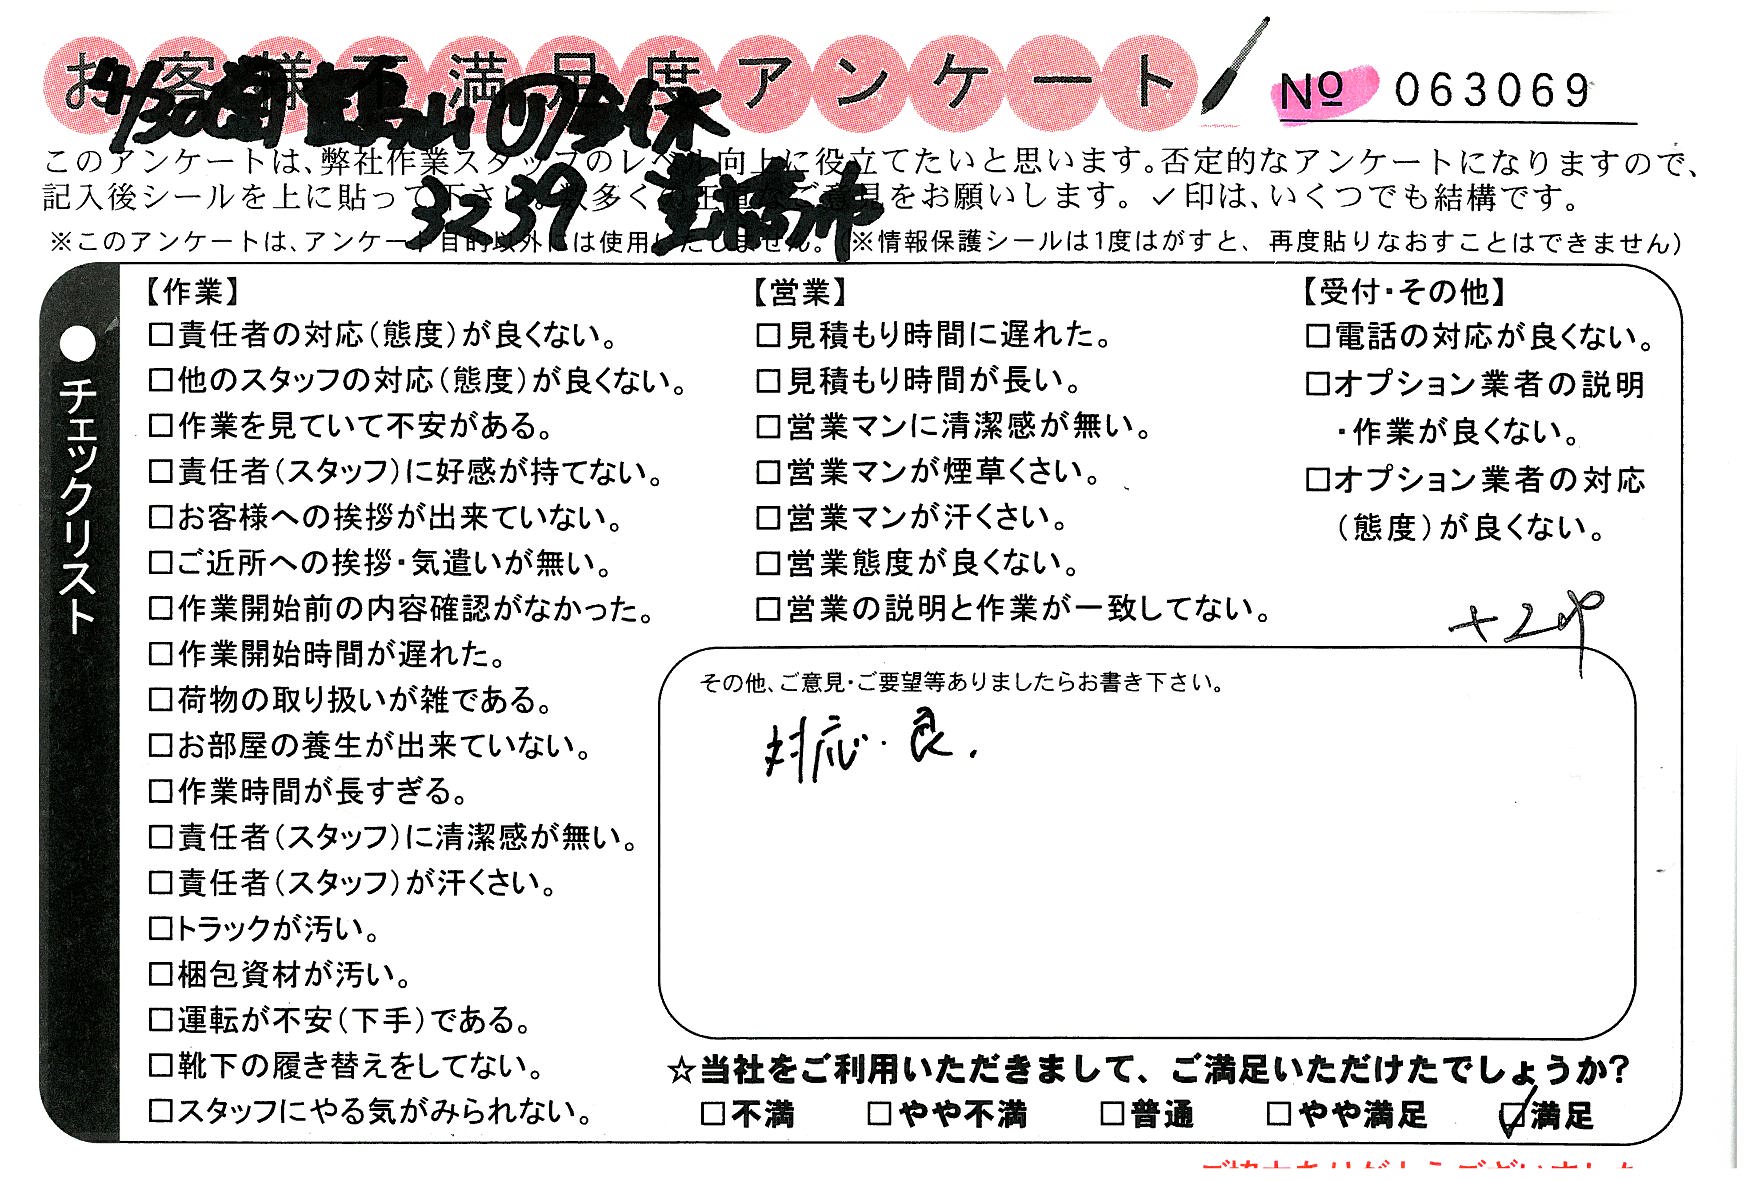 お客様不満足度アンケート
№ 063069
3239
このアンケートは、弊社作業スタッフのレベル向上に役立てたいと思います。否定的なアンケートになりますので、
記入後シールを上に貼って下さい。数多くの正直なご意見をお願いします。✓印は、いくつでも結構です。
※このアンケートは、アンケート目的以外には使用いたしません。(※情報保護シールは1度はがすと、再度貼りなおすことはできません)
●チェックリスト
【作業】
□責任者の対応(態度)が良くない。
□他のスタッフの対応(態度)が良くない。
□作業を見ていて不安がある。
□責任者(スタッフ)に好感が持てない。
□お客様への挨拶が出来ていない。
□ご近所への挨拶・気遣いが無い。
□作業開始前の内容確認がなかった。
□作業開始時間が遅れた。
□荷物の取り扱いが雑である。
□お部屋の養生が出来ていない。
□作業時間が長すぎる。
□責任者(スタッフ)に清潔感が無い。
□責任者(スタッフ)が汗くさい。
□トラックが汚い。
□梱包資材が汚い。
□運転が不安(下手)である。
□靴下の履き替えをしてない。
□スタッフにやる気がみられない。
【営業】
□見積もり時間に遅れた。
□見積もり時間が長い。
□営業マンに清潔感が無い。
□営業マンが煙草くさい。
□営業マンが汗くさい。
□営業態度が良くない。
□営業の説明と作業が一致してない。
【受付・その他】
□電話の対応が良くない。
□オプション業者の説明
・作業が良くない。
□オプション業者の対応
(態度)が良くない。
その他、ご意見・ご要望等ありましたらお書き下さい。
対応・良.
☆当社をご利用いただきまして、ご満足いただけたでしょうか?
□不満 □やや不満 □普通 □やや満足 ☑満足